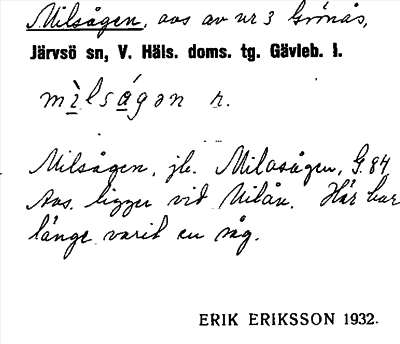 Milsågen, avs av nr 3 Grönås,
Järvsö sn, V. Häls. doms. tg. Gävleb. l.
mìlságan n.
Milsågen, jfr. Milasågen, G. 84
Avs. ligger vid Milån. Här har
länge varit en såg.
ERIK ERIKSSON 1932.